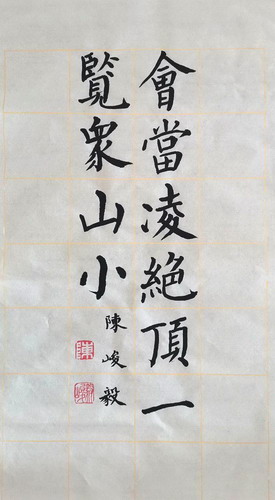 會當凌絕頂一
覽衆山小
陳峻毅
陳